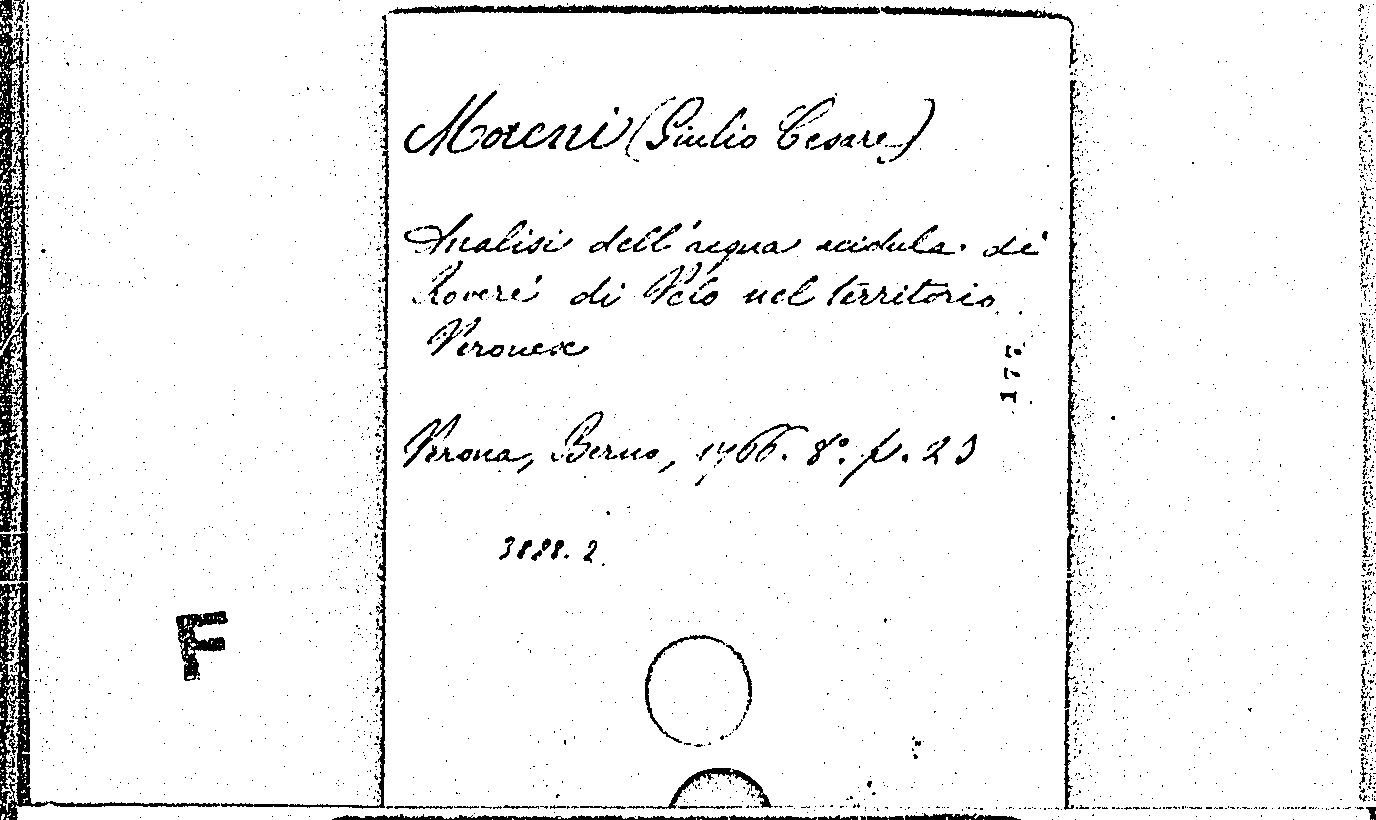 Moreni (Giulio Cesare)
Analisi dell'acqua acidula di
Roveré di Velo nel territorio
Veronese
177
Verona, Berno, 1766. 8º. p. 23
3888. 2
F